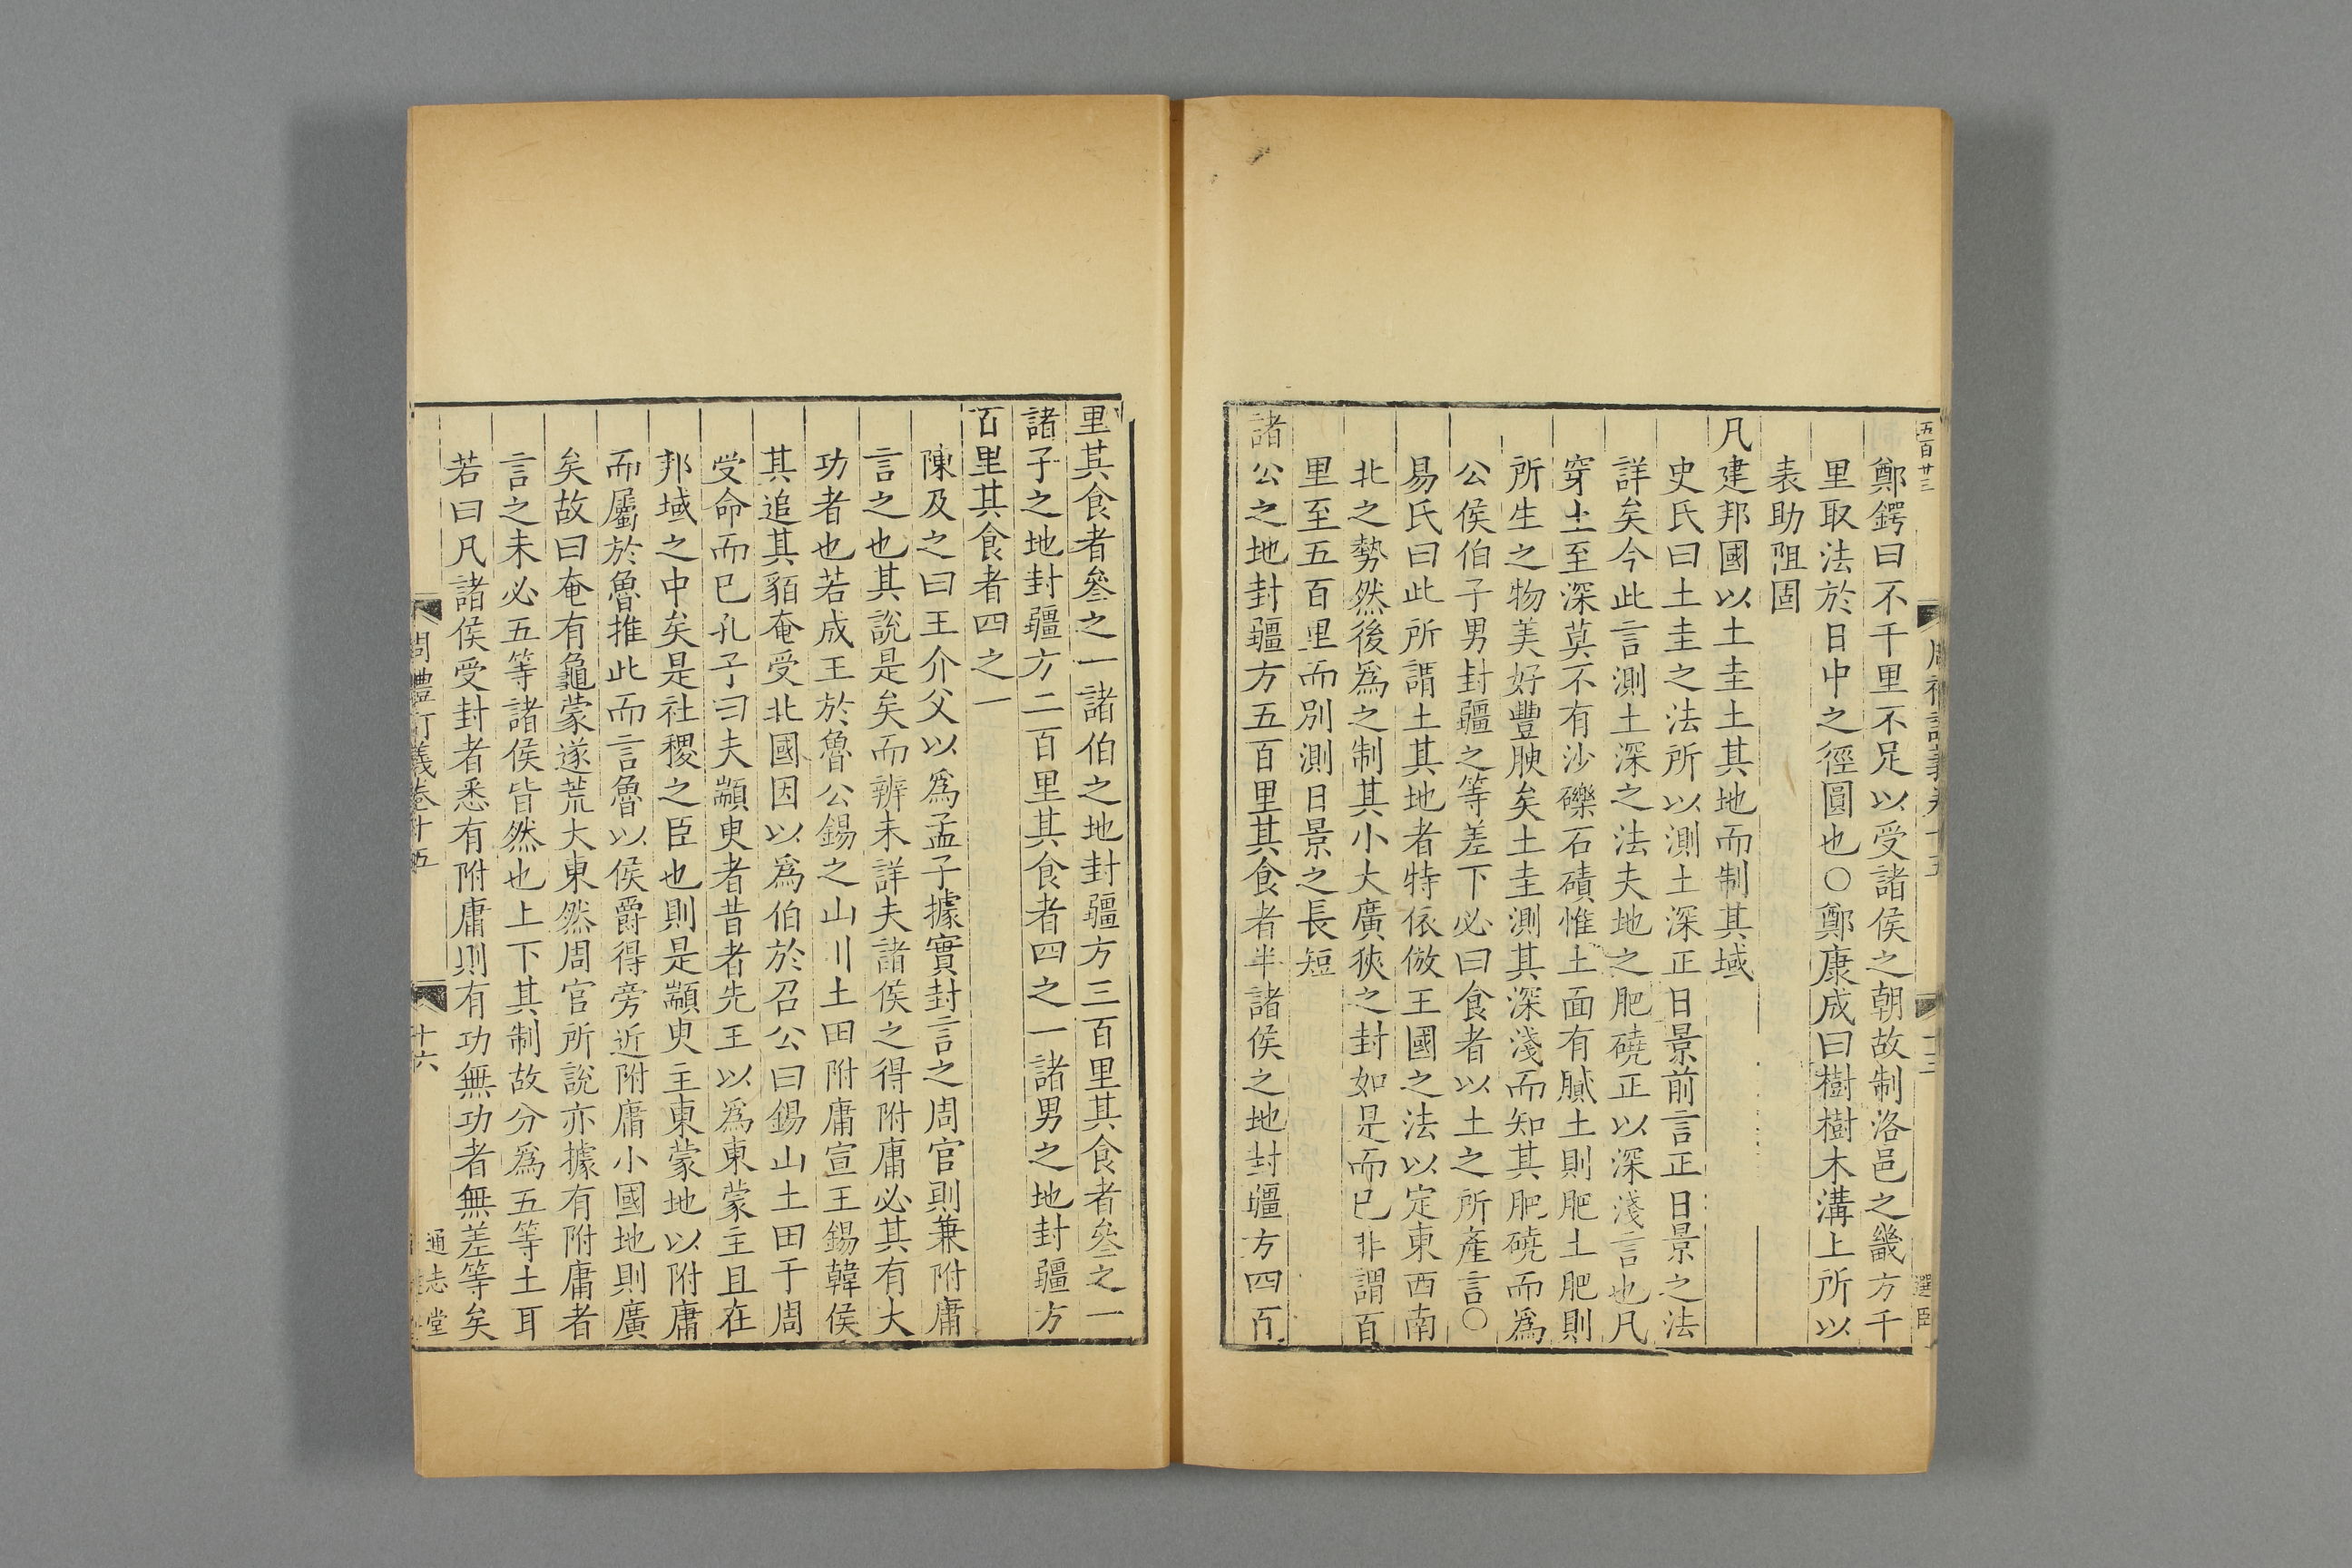 五百廿三
鄭鍔曰不千里不足以受諸侯之朝故制洛邑之畿方千
里取法於日中之徑圓也〇鄭康成曰樹樹木溝上所以
表助阻固
凡建邦國以土圭土其地而制其域
史氏曰土圭之法所以測土深正日景前言正日景之法
詳矣今此言測土深之法夫地之肥磽正以深淺言也凡
穿土至深莫不有沙礫石磧惟土面有膩土則肥土肥則
所生之物美好豐腴矣土圭測其深淺而知其肥磽而爲
公侯伯子男封疆之等差下必曰食者以土之所產言〇
易氏曰此所謂土其地者特依倣王國之法以定東西南
北之勢然後爲之制其小大廣狹之封如是而已非謂百
里至五百里而別測日景之長短
諸公之地封疆方五百里其食者半諸侯之地封疆方四百
里其食者參之一諸伯之地封疆方三百里其食者參之一
諸子之地封疆方二百里其食者四之一諸男之地封疆方
百里其食者四之一
陳及之曰王介父以爲孟子據實封言之周官則兼附庸
言之也其說是矣而辨未詳夫諸侯之得附庸必其有大
功者也若成王於魯公錫之山川土田附庸宣王錫韓侯
其追其貊奄受北國因以爲伯於召公曰錫山土田于周
受命而已孔子曰夫顓臾者昔者先王以爲東蒙主且在
邦域之中矣是社稷之臣也則是顓臾主東蒙地以附庸
而屬於魯推此而言魯以侯爵得旁近附庸小國地則廣
矣故曰奄有龜蒙遂荒大東然周官所說亦據有附庸者
言之未必五等諸侯皆然也上下其制故分爲五等土耳
若曰凡諸侯受封者悉有附庸則有功無功者無差等矣
周禮訂義卷十五
十六
通志堂